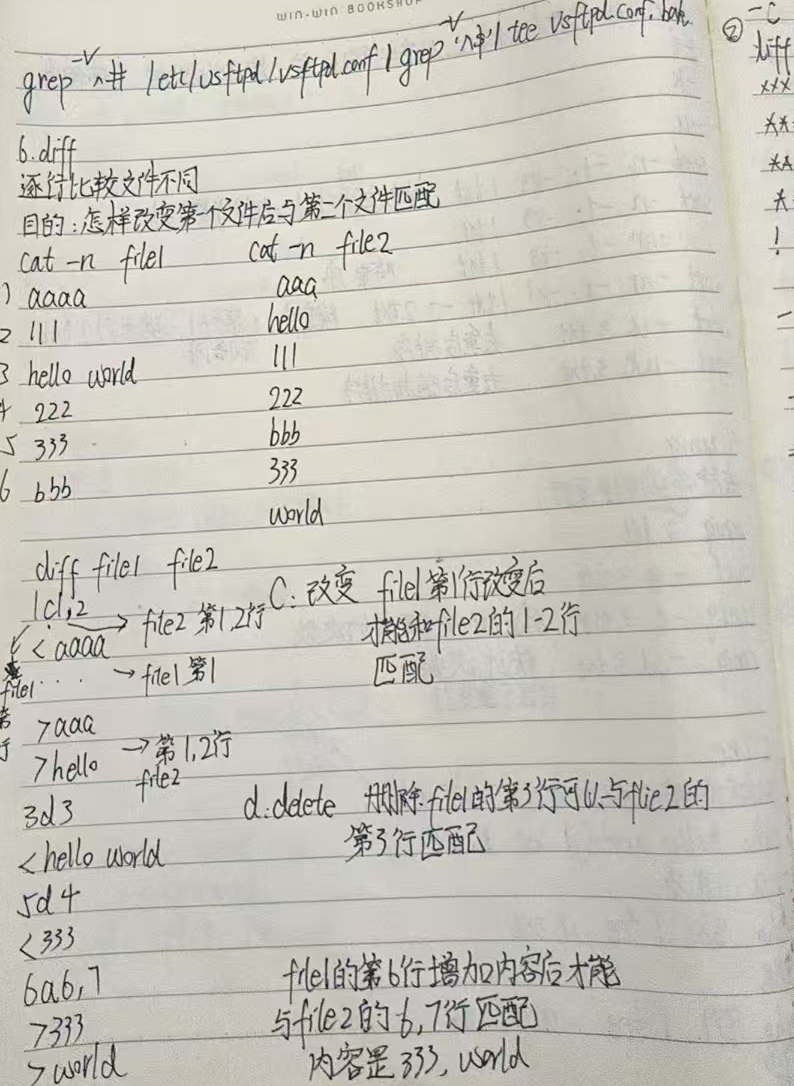 WIN-WIN BOOKSHOP
grep -v ^# /etc/vsftpd/vsftpd.conf | grep -v '^$' | tee vsftpd.conf.bak
6.diff
逐行比较文件不同
目的:怎样改变第一个文件后与第二个文件匹配
cat -n file1 cat -n file2
1 aaaa aaa
2 111 hello
3 hello world 111
4 222 222
5 333 bbb
6 bbb 333
world
diff file1 file2
1c1,2 → file2 第1,2行
C:改变 file1第1行改变后
才能和file2的1-2行
匹配
< aaaa → file1 第1
file1
行
---
>aaa
>hello → 第1,2行
file2
3d3 d:delete 删除file1的第3行可以与flie2的
第3行匹配
<hello world
5d4
<333
6a6,7 file1的第6行增加内容后才能
>333 与file2的6,7行匹配
>world 内容是333, world
② -c
diff
xxx